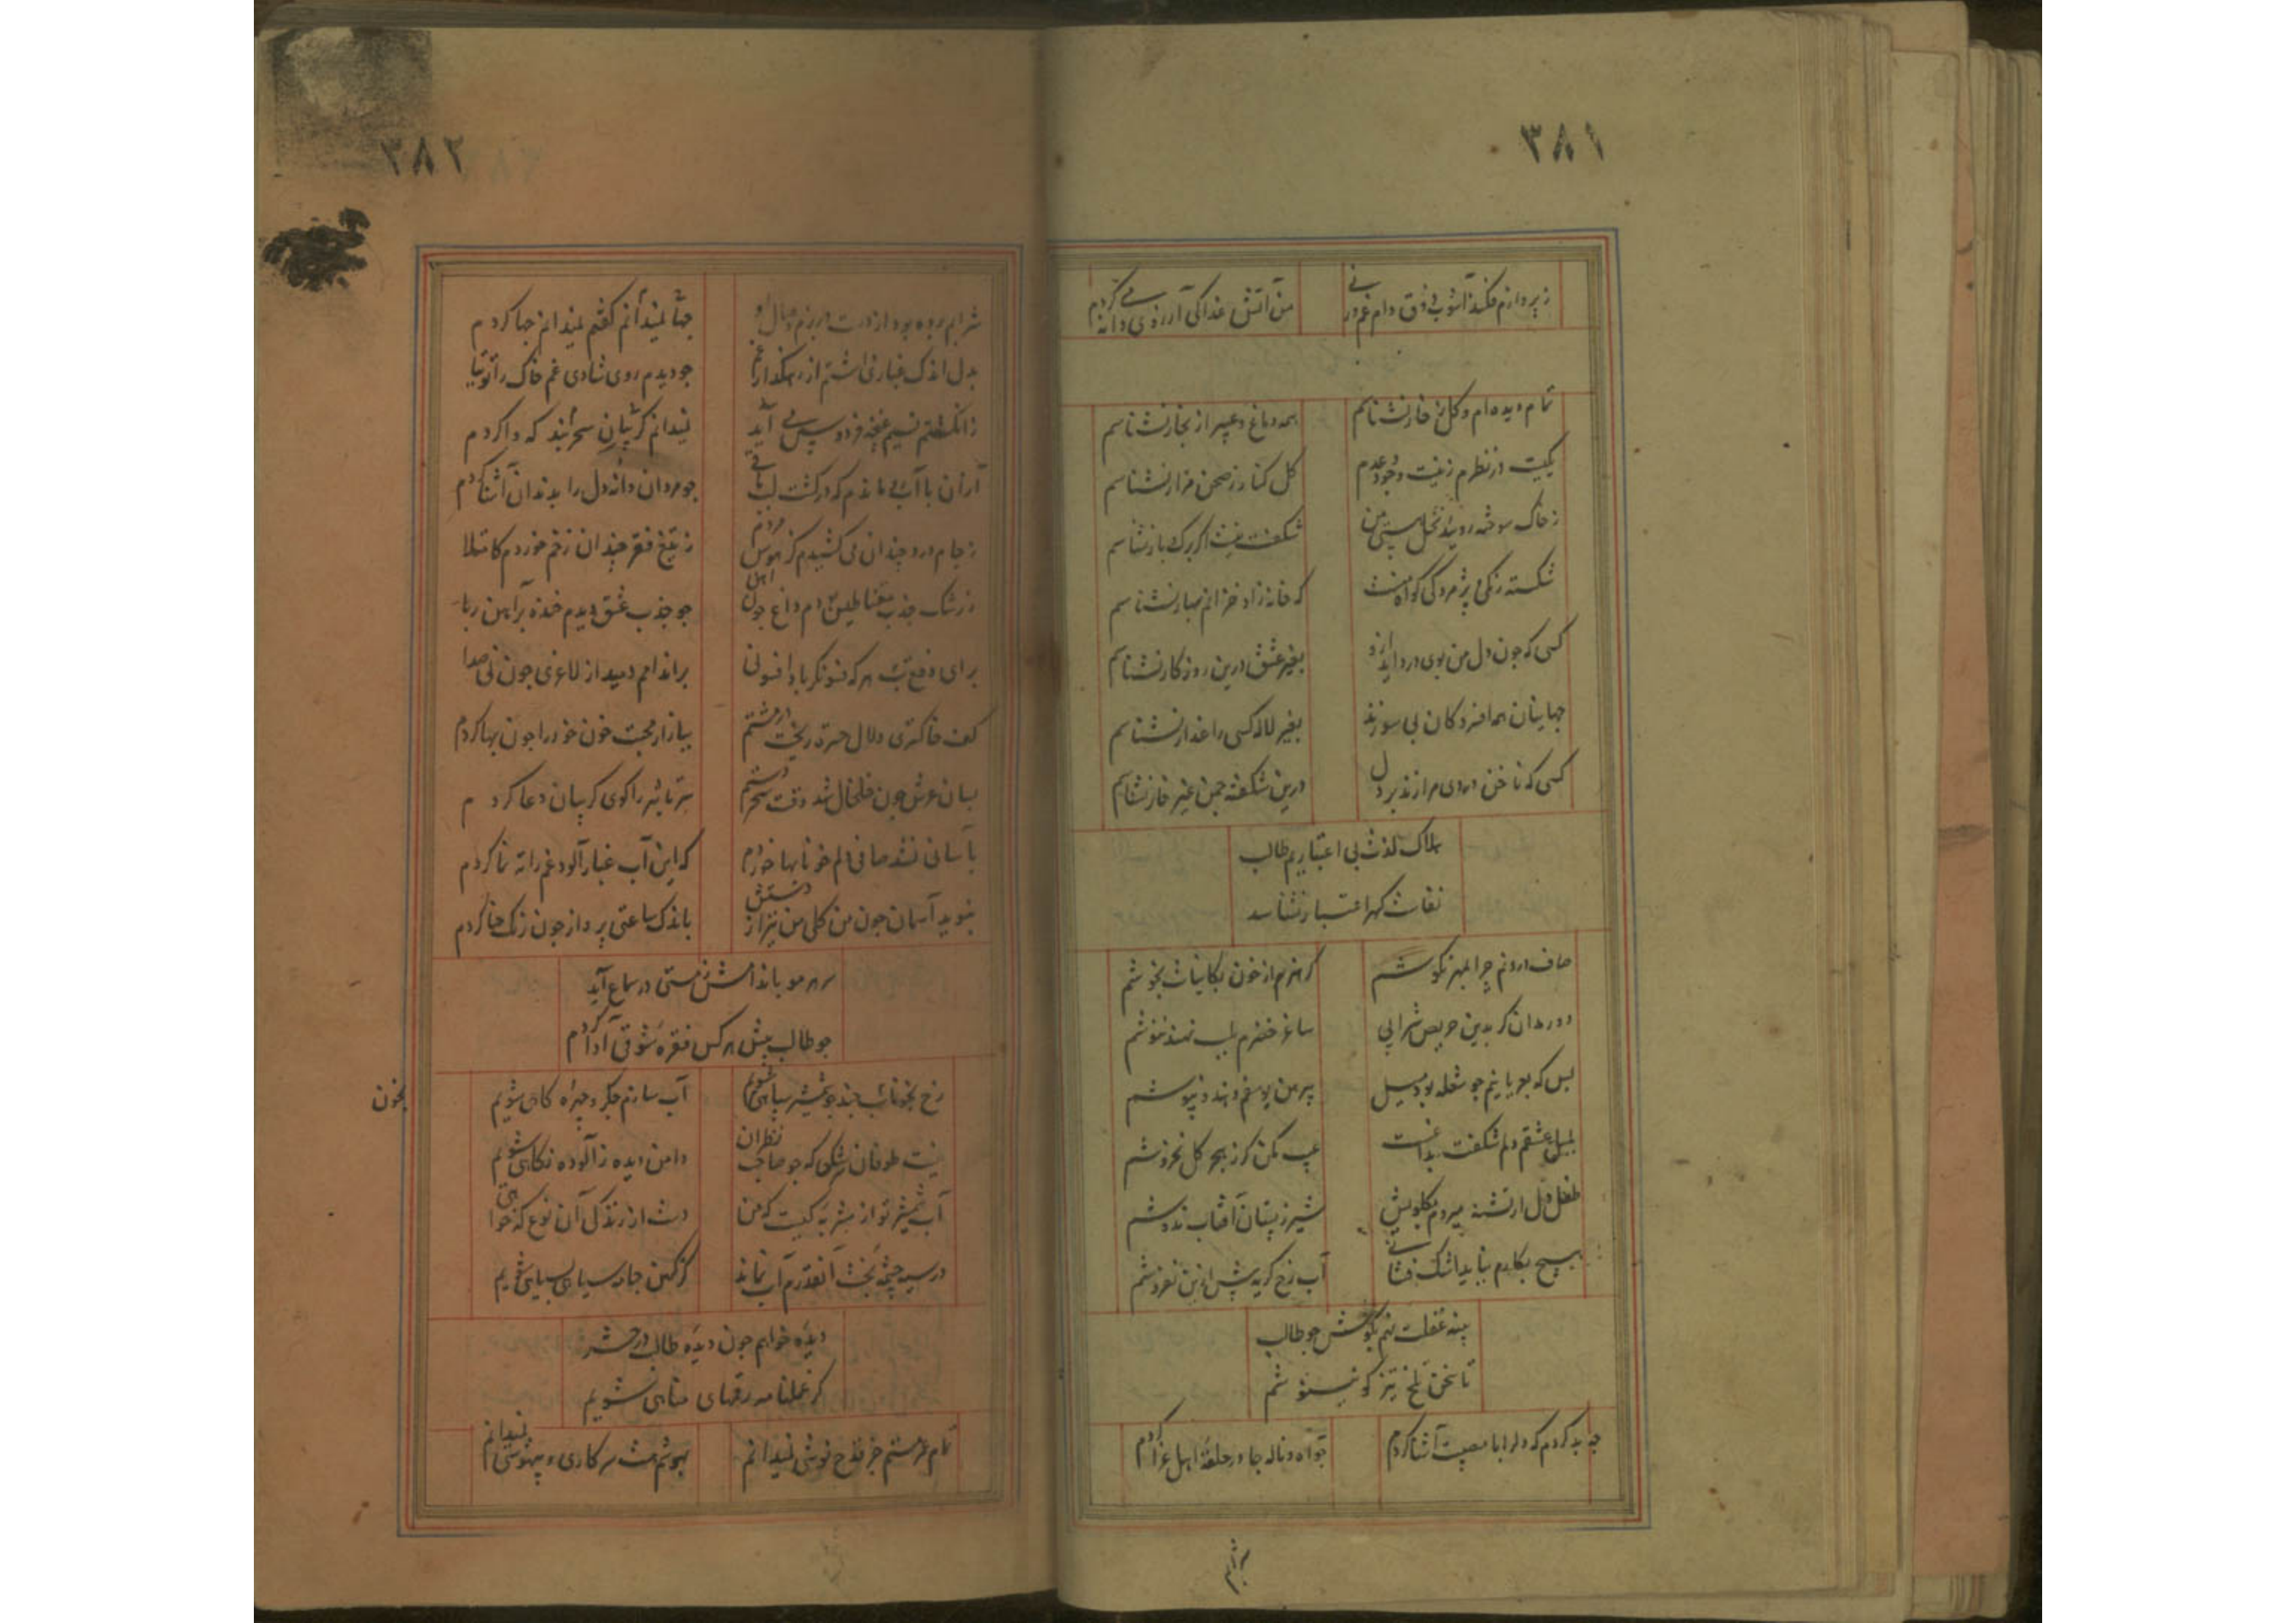 ۳۸۱
ز پروازم فکند آشوب ذوق دام غم ور نی
من آتش غذا کی آرزوی دانه می کردم
تمام دیده ام و گل ز خار نشناسم
همه دماغ و عبیر از بخار نشناسم
یکیست در نظرم زینت وجود و عدم
گل کنار ز صحن مزار نشناسم
ز خاک سوخته روئید نخل هستی من
شکفت نیست اگر برگ و بار نشناسم
شکسته رنگی و پژمردگی گواه منست
که خانه زاد خزانم بهار نشناسم
کسی که چون دل من بوی درد آید ازو
بغیر عشق درین روزگار نشناسم
جهانیان همه افسردگان بی سوزند
بغیر لاله کسی داغدار نشناسم
کسی که ناخن دردی مرا زند بر دل
درین شکفته چمن غیر خار نشناسم
هلاک لذت بی اعتباریم طالب
نفاست گهر اعتبار نشناسم
صاف درونم چرا بمهر نکوشم
گر هنرم از خون بکاینات بجوشم
دور مدان گر بدین حریص شرابی
ساغر خضرم بلب نهند ننوشم
بس که بعریانیم چو شعله بود میل
پیرهن یوسفم دهند نپوشم
بلبل عشقم دلم شکفت بداغت
عیب مکن گر ز هجر گل نخروشم
طفل دل ار تشنه میردم بگلویش
شیر ز پستان آفتاب ندوشم
هیچ بکارم نیاید اشک فشانی
آب رخ گریه بیش ازین نفروشم
پنبه غفلت نهم بگوش چو طالب
تا سخن تلخ نیز گو ننیوشم
چه بد کردم که دلرا با مصیبت آشنا کردم
چو آه و ناله جا در حلقه اهل عزا کردم
شرابم
۳۸۲
شرابم برده بود از دست در بزم وصال او
جفا نمیدانم کفتم نمیدانم چها کردم
بدل اندک غباری داشتم از رهگذار غم
چو دیدم روی شادی غم خاک را توتیا
ز انگشتم نسیم غنچه فردوس می آید
نمیدانم گریبان سحر بند که وا کردم
از آن با آب می ماندم که در کشت لب نانی
چو مردان دانه دل را بدندان آشنا کردم
ز جام درد چندان می کشیدم کز هوس مردم
ز تیغ فقر چندان زخم خوردم کابتلا
ز رشک جذب مقناطیس دام داغ چون اهن
چو جذب عشق دیدم خنده بر آهن ربا
برای دفع تب هر که فسونگر باد افسونی
بر اندامم دمید از لاغری چون نی صدا
کف خاکستری دلال حسرت ریخت در مشتم
ببازار محبت خون خود را چون بها کردم
بسان عرش چون خلخال شد وقت سحر دستم
سر تا شیر را گوی گریبان دعا کردم
بآسانی نشد صافی دلم خونابها خوردم
که این آب غبار آلود غم را ته نما کردم
نبوید آسمان چون من گلی من نیز از دستش
باندک ساعتی پرواز چون رنگ حنا کردم
سر هر مو باندامش ز مستی در سماع آید
چو طالب پیش هر کس فقره شوقی ادا کردم
رخ بخوناب جند چو شمشیر سپاهی شویم
آب سازم جگر و چهره کاهی شویم
نیست طوفان سرشکی که چو صاحب نظران
دامن دیده ز آلوده نگاهی شویم
آب شمشیر تو از شربه کیست که من
دست از زندگی آن نوع که خواهی
در سیه چشمه بخت آنقدرم آب نماند
کز کهن جامه سیاهی بسیاهی شویم
دیده خواهم چون دیده طالب در حشر
کز عملنامه رقمهای مناهی شویم
تمام عمر مستم جز قدح نوشی نمیدانم
بهوشم مست سر کاری و بیهوشی نمیدانم
بخون